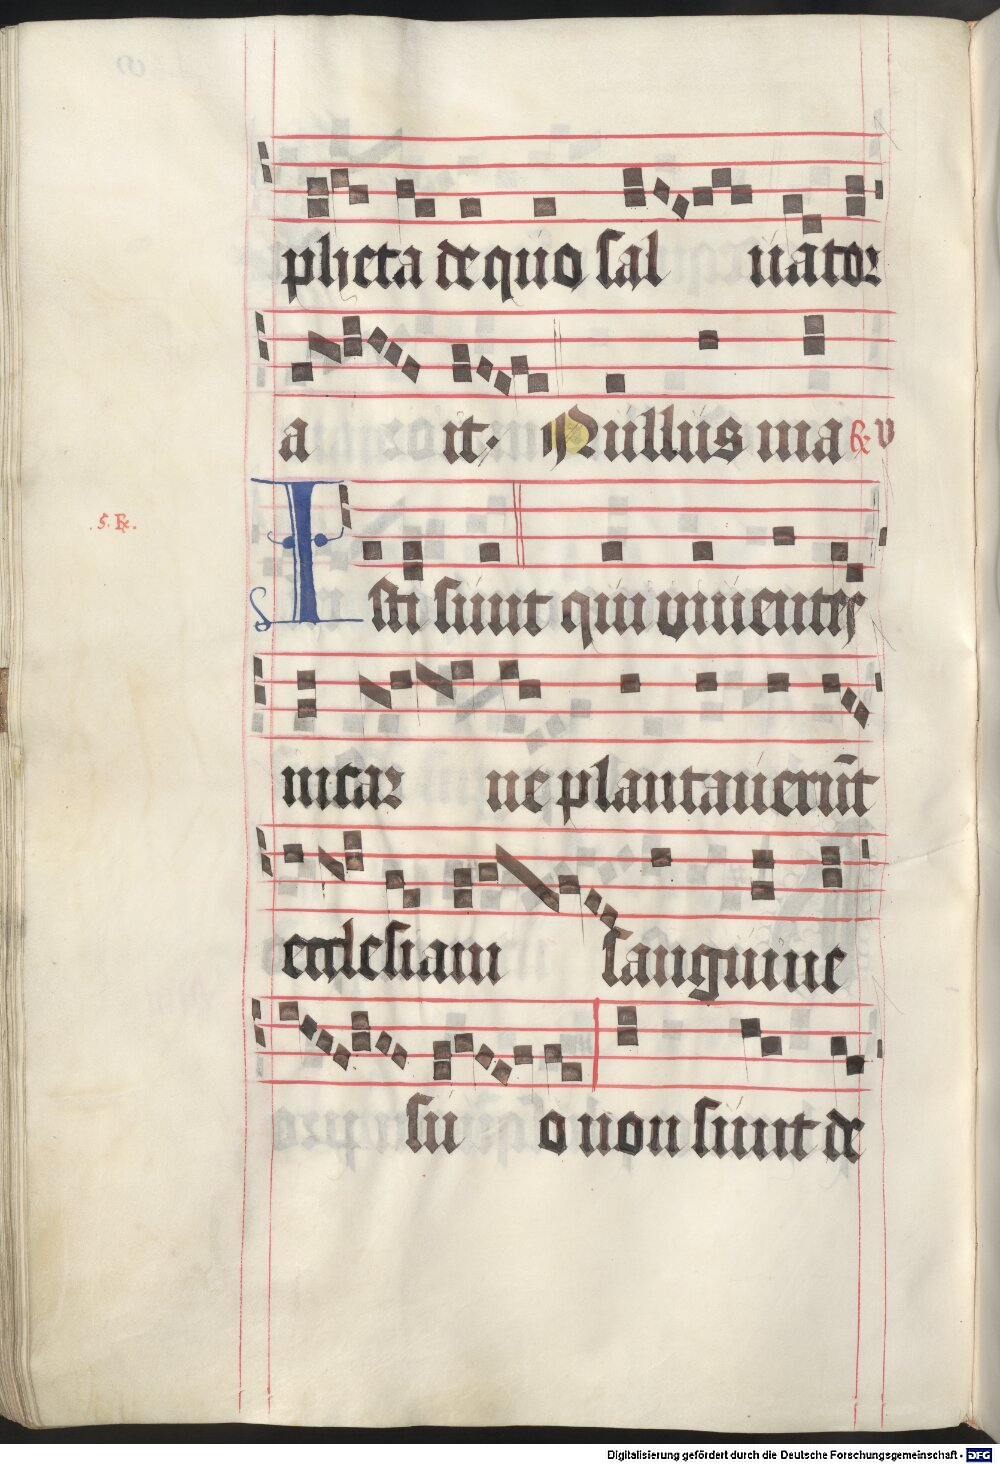 pheta de quo sal uator
a it. Nullus ma ℟ v
.5. ℟.
Isti sunt qui uiuentes
in car ne plantauerūt
ecclesiam sanguine
su o non sunt de
Digitalisierung gefördert durch die Deutsche Forschungsgemeinschaft - DFG